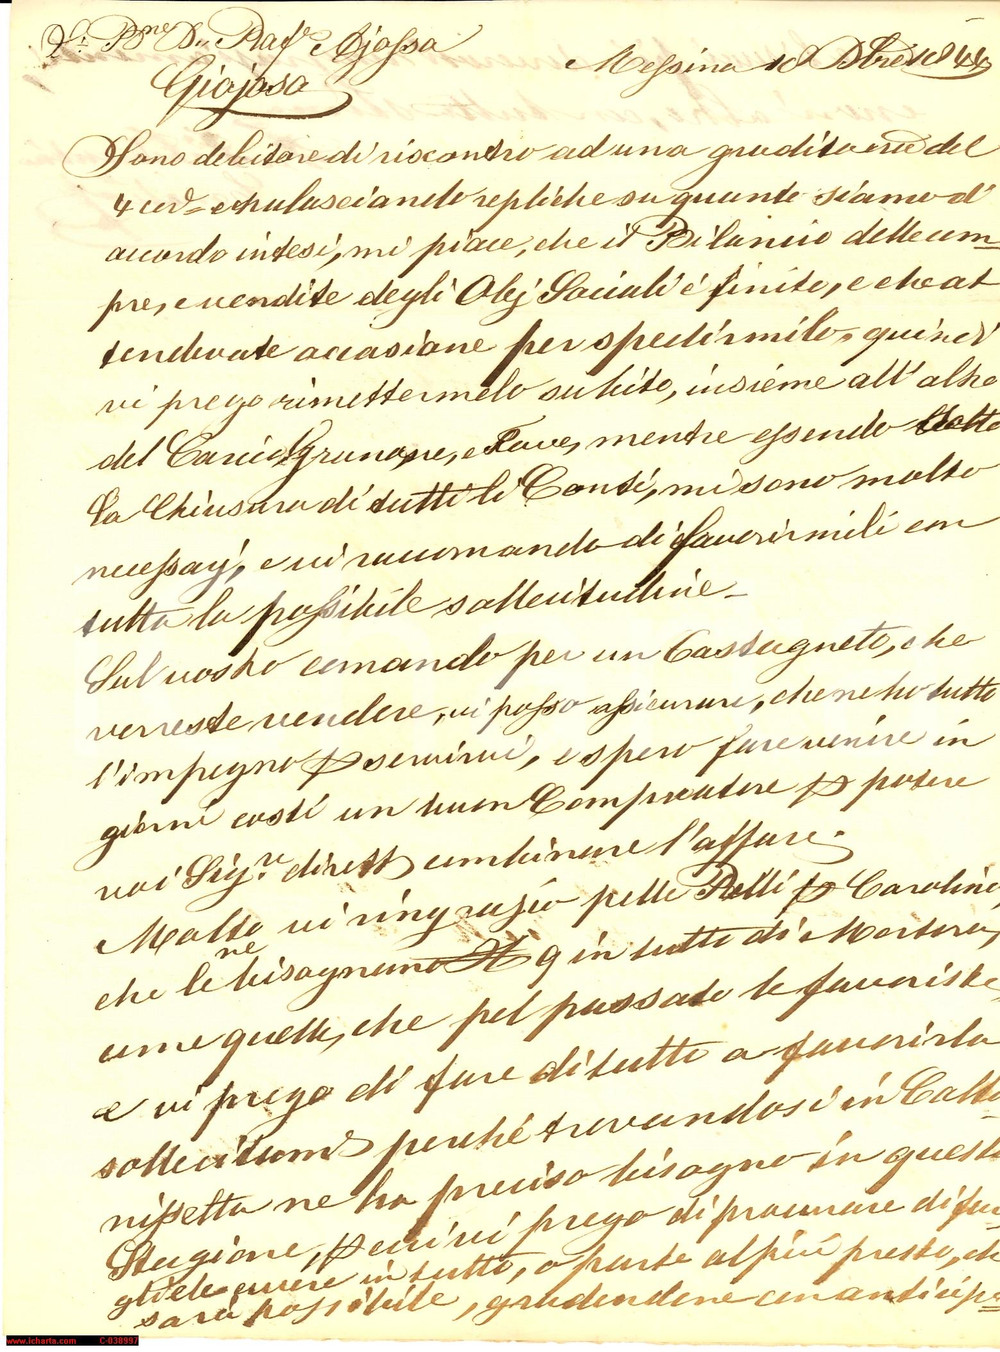 Bne Dn Rafe Ajossa
Giojosa
Messina 10 Dbre 1844
Sono debitore di riscontro ad una gradita del
4 and e tralasciando repliche su quanto siamo d'
accordo intesi, mi piace, che il Bilancio delle com=
pre, e vendite degli Olej Sociali è finito, e che at
tendevate occasione per spedirmilo, quindi
vi prego rimettermelo subito, insieme all'altro
del Grano, e Fave, mentre essendo
la Chiusura di tutti li Conti, mi sono molto
necessarj, e vi raccomando di favorirmili con
tutta la possibile sollecitudine.
Sul vostro comando per un Castagneto, che
verreste vendere, vi posso assicurare, che ne ho tutto
l'impegno p servirvi, e spero fare venire in
giorni costì un buon Compratore p potere
voi Sigr. dirett combinare l'affare.
Molto vi ringrazio pelle Pelli p Carolina,
che le ne bisognano 9 in tutto di Martora,
come quelle, che pel passato le favoriste
e vi prego di fare di tutto a favorirla
sollecitamte perchè trovandosi in Calta
nissetta ne ha preciso bisogno in questa
Stagione, p cui vi prego di procurare di far
gliele avere in tutto, o parte al più presto, che
sarà possibile, gradendone con anticipa=
www.icharta.com C-038997